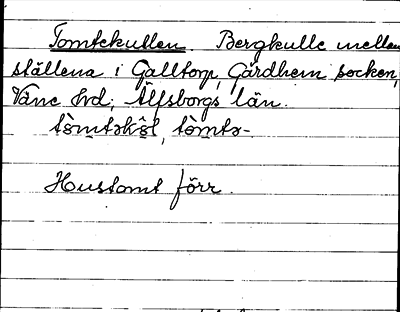 Tomtekullen Bergkulle mellan
ställena i Galltorp, Gärdhem socken,
Väne hrd, Älfsborgs län.
tòmtəkəl, tòmtə-
Hustomt förr.